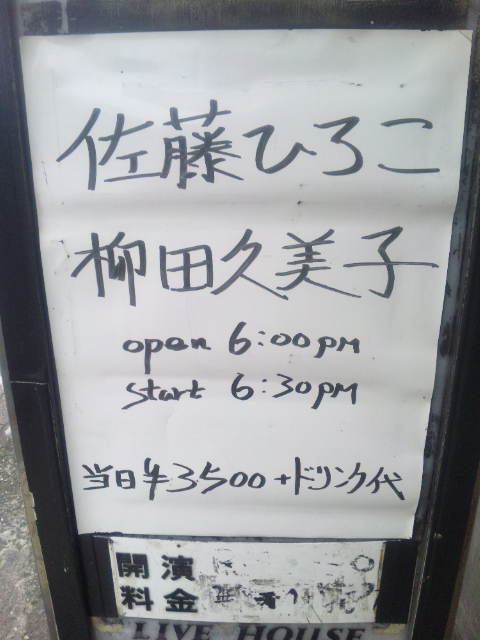 佐藤ひろこ
柳田久美子
open 6:00PM
start 6:30PM
当日¥3500+ドリンク代
開演
料金
LIVE HOUSE